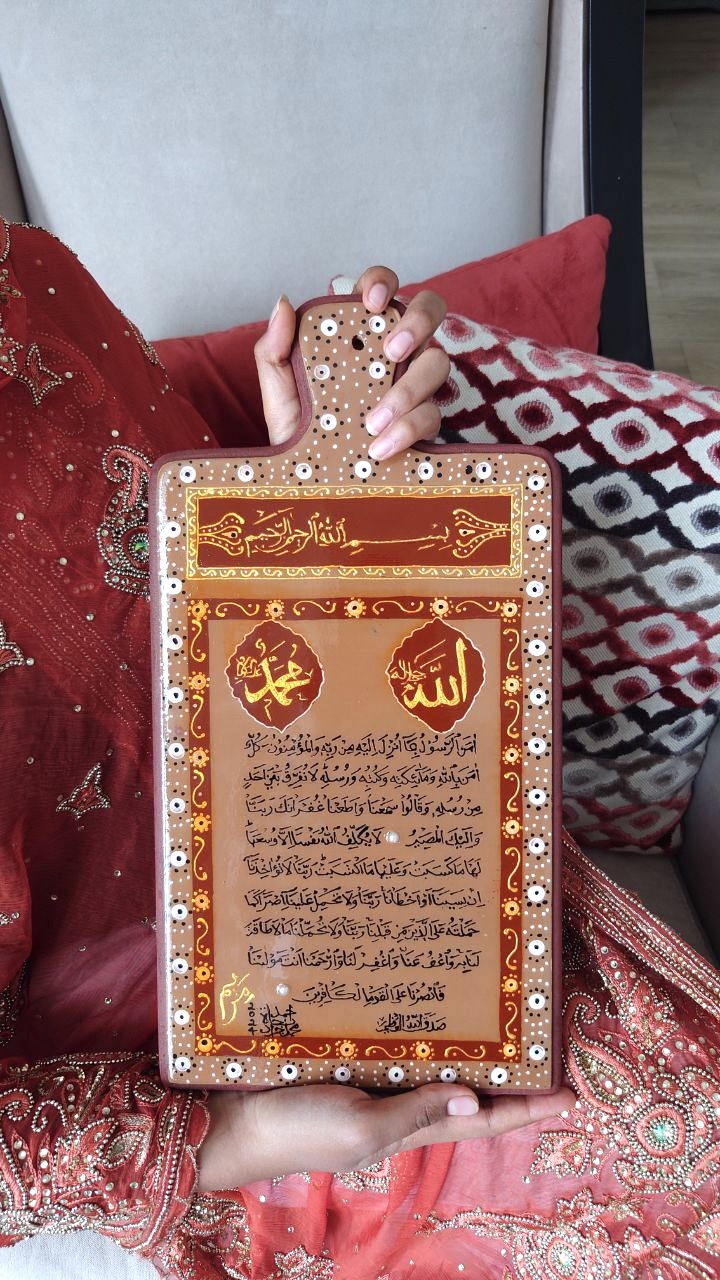 بسم الله الرحمن الرحيم
الله جل جلاله
محمد
امن الرسول بما انزل اليه من ربه والمؤمنون كل
امن بالله وملئكته وكتبه ورسله لا نفرق بين احد
من رسله وقالوا سمعنا واطعنا غفرانك ربنا
واليك المصير لا يكلف الله نفسا الا وسعها
لها ما كسبت وعليها ما اكتسبت ربنا لا تؤاخذنا
ان نسينا او اخطانا ربنا ولا تحمل علينا اصرا كما
حملته على الذين من قبلنا ربنا ولا تحملنا ما لا طاقة
لنا به واعف عنا واغفر لنا وارحمنا انت مولينا
فانصرنا على القوم الكافرين
صدق الله العظيم